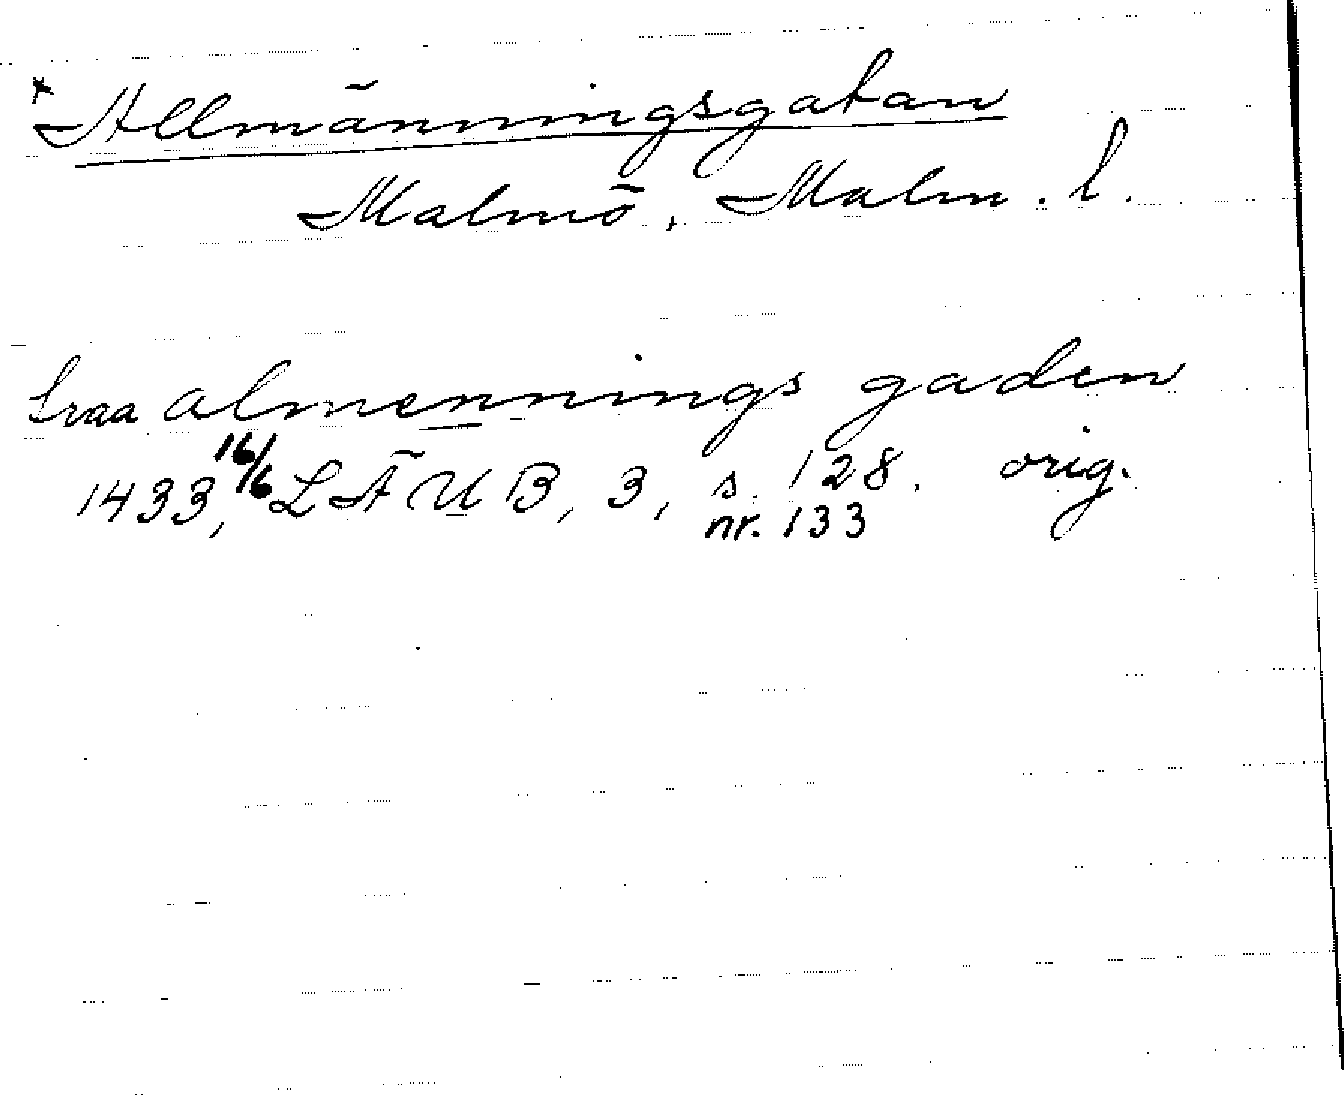 * Allmänningsgatan
Malmö, Malm. l.
i vaa almennings gaden
1433, 16/6 LÄUB, 3, s. 128. orig.
nr. 133